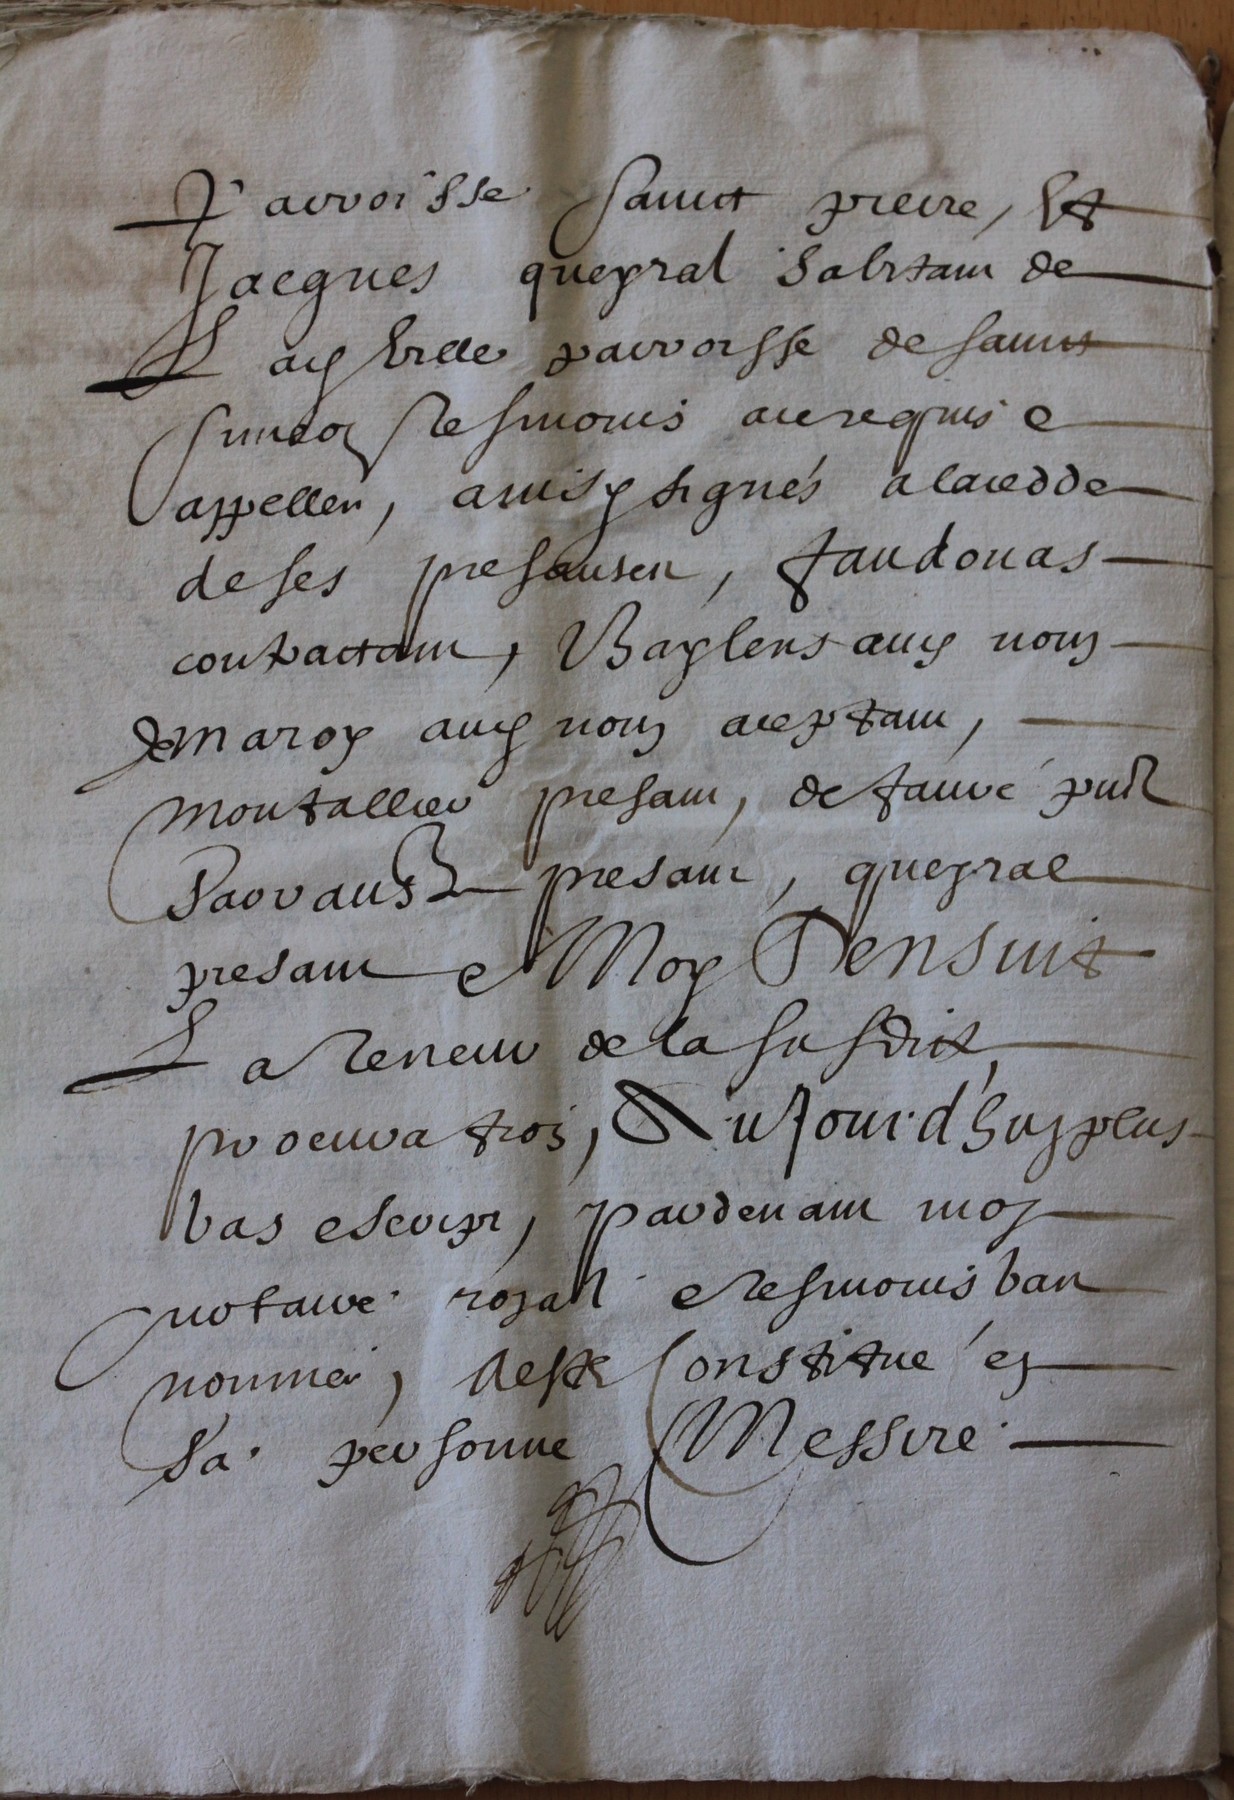 Parroisse sainct pierre, Et
Jacques queyral habitant de
La ville parroisse de sainct
tesmoins a ce requis e
appelles, ainsy signés a la cedde
de ses presantes, faudouas
contractant, Baylens auy nom
maroy auy nom aceptant,
montallier presant, de faure
presant, queyral
presant e Moy S'ensuit
La teneur de la susdict
procuration, Aujourd'huy plus
bas escript, pardevant moy
notaire royal e tesmoins bas
nommés, A esté Constitué en
sa personne Messire